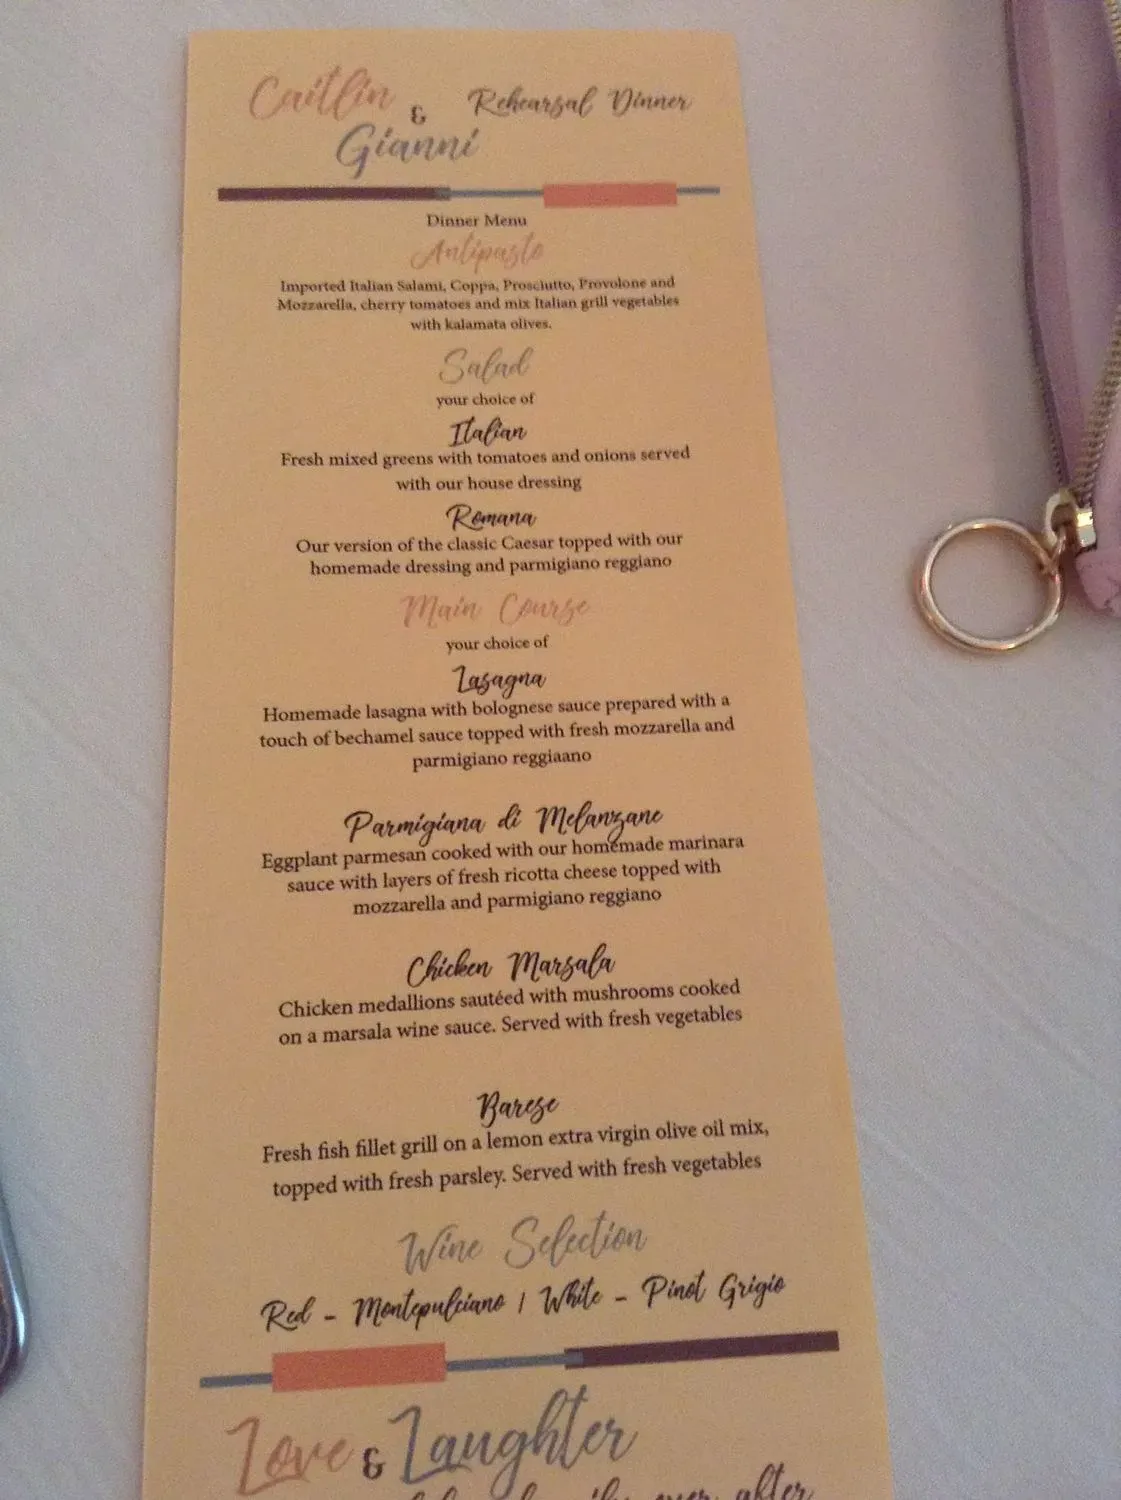 Caitlin & Rehearsal Dinner
Gianni
Dinner Menu
Antipasto
Imported Italian Salami, Coppa, Prosciutto, Provolone and
Mozzarella, cherry tomatoes and mix Italian grill vegetables
with kalamata olives.
Salad
your choice of
Italian
Fresh mixed greens with tomatoes and onions served
with our house dressing
Romana
Our version of the classic Caesar topped with our
homemade dressing and parmigiano reggiano
Main Course
your choice of
Lasagna
Homemade lasagna with bolognese sauce prepared with a
touch of bechamel sauce topped with fresh mozzarella and
parmigiano reggiaano
Parmigiana di Melanzane
Eggplant parmesan cooked with our homemade marinara
sauce with layers of fresh ricotta cheese topped with
mozzarella and parmigiano reggiano
Chicken Marsala
Chicken medallions sautéed with mushrooms cooked
on a marsala wine sauce. Served with fresh vegetables
Barese
Fresh fish fillet grill on a lemon extra virgin olive oil mix,
topped with fresh parsley. Served with fresh vegetables
Wine Selection
Red - Montepulciano | White - Pinot Grigio
Love & Laughter
ever after